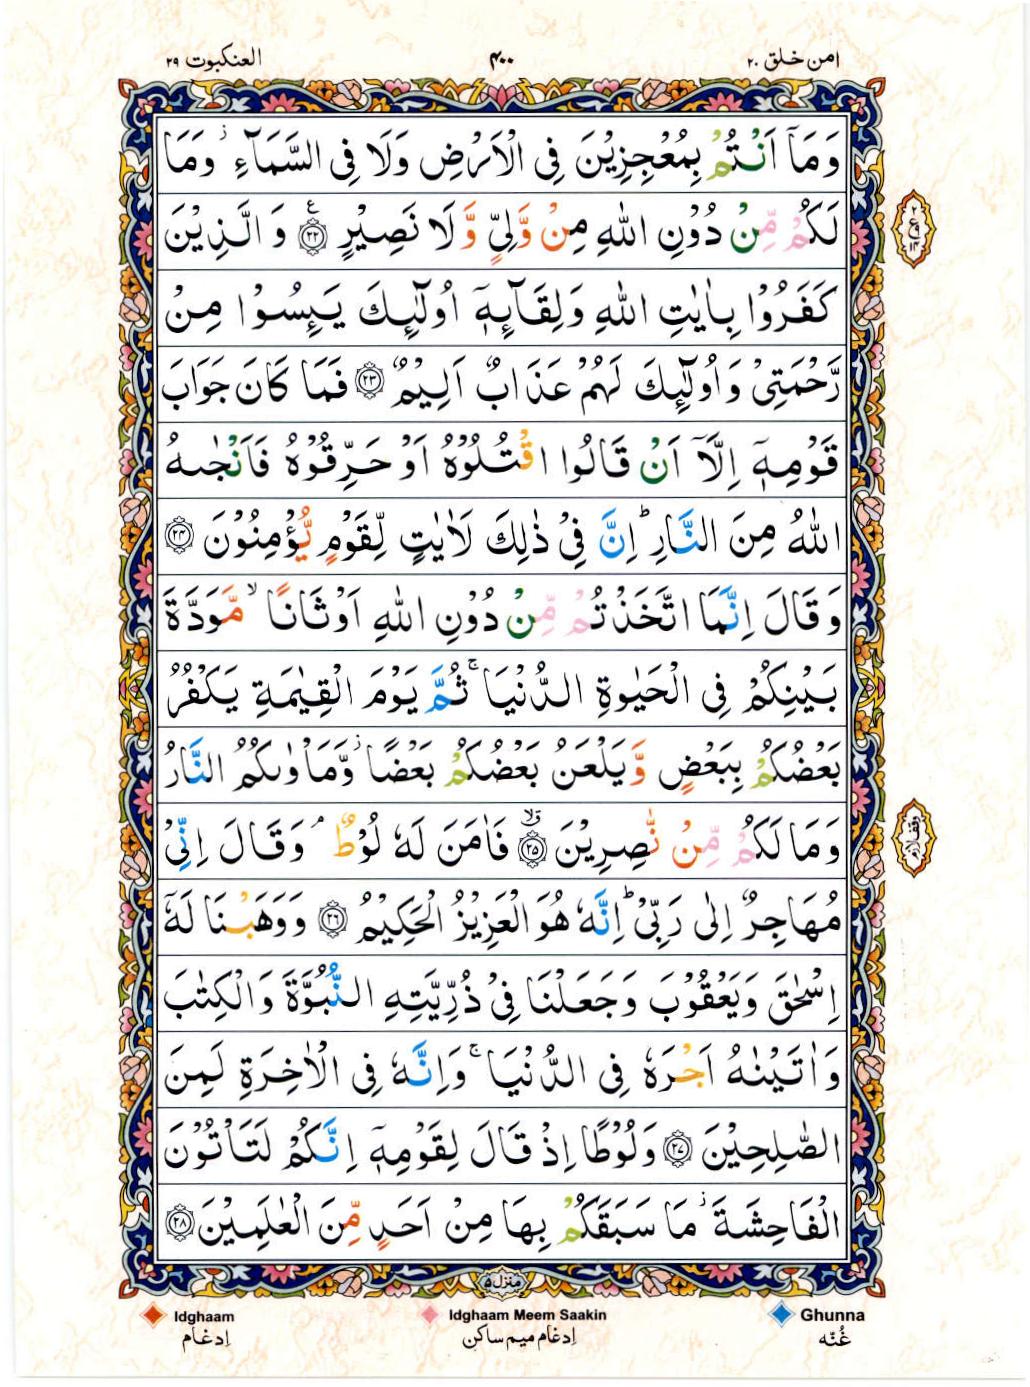 امن خلق ۲۰
۴۰۰
العنکبوت ۲۹
وَمَاۤ اَنْتُمْ بِمُعْجِزِیْنَ فِی الْاَرْضِ وَلَا فِی السَّمَآءِ ؗ وَمَا
لَكُمْ مِّنْ دُوْنِ اللّٰهِ مِنْ وَّلِیٍّ وَّلَا نَصِیْرٍ ۧ۝۲۲ وَالَّذِیْنَ
كَفَرُوْا بِاٰیٰتِ اللّٰهِ وَلِقَآئِهٖۤ اُولٰٓئِكَ یَىِٕسُوْا مِنْ
رَّحْمَتِیْ وَاُولٰٓئِكَ لَهُمْ عَذَابٌ اَلِیْمٌ ۝۲۳ فَمَا كَانَ جَوَابَ
قَوْمِهٖۤ اِلَّاۤ اَنْ قَالُوا اقْتُلُوْهُ اَوْ حَرِّقُوْهُ فَاَنْجٰىهُ
اللّٰهُ مِنَ النَّارِ ؕ اِنَّ فِیْ ذٰلِكَ لَاٰیٰتٍ لِّقَوْمٍ یُّؤْمِنُوْنَ ۝۲۴
وَقَالَ اِنَّمَا اتَّخَذْتُمْ مِّنْ دُوْنِ اللّٰهِ اَوْثَانًا ۙ مَّوَدَّةَ
بَیْنِكُمْ فِی الْحَیٰوةِ الدُّنْیَا ۚ ثُمَّ یَوْمَ الْقِیٰمَةِ یَكْفُرُ
بَعْضُكُمْ بِبَعْضٍ وَّیَلْعَنُ بَعْضُكُمْ بَعْضًا ؗ وَّمَاْوٰىكُمُ النَّارُ
وَمَا لَكُمْ مِّنْ نّٰصِرِیْنَ ۝۲۵ فَاٰمَنَ لَهٗ لُوْطٌ ۘ وَقَالَ اِنِّیْ
مُهَاجِرٌ اِلٰی رَبِّیْ ؕ اِنَّهٗ هُوَ الْعَزِیْزُ الْحَكِیْمُ ۝۲۶ وَوَهَبْنَا لَهٗۤ
اِسْحٰقَ وَیَعْقُوْبَ وَجَعَلْنَا فِیْ ذُرِّیَّتِهِ النُّبُوَّةَ وَالْكِتٰبَ
وَاٰتَیْنٰهُ اَجْرَهٗ فِی الدُّنْیَا ۚ وَاِنَّهٗ فِی الْاٰخِرَةِ لَمِنَ
الصّٰلِحِیْنَ ۝۲۷ وَلُوْطًا اِذْ قَالَ لِقَوْمِهٖۤ اِنَّكُمْ لَتَاْتُوْنَ
الْفَاحِشَةَ ؗ مَا سَبَقَكُمْ بِهَا مِنْ اَحَدٍ مِّنَ الْعٰلَمِیْنَ ۝۲۸
وقف لازم
منزل ۵
Idghaam
ادغام
Idghaam Meem Saakin
ادغام میم ساکن
Ghunna
غُنّه